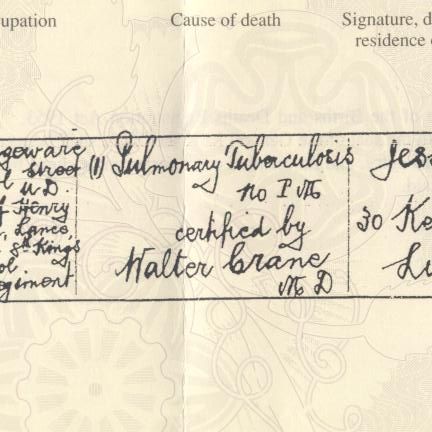 upation
Cause of death
Signature, d
residence o
geware
street
U.D.
f Henry
, Lance,
8th Kings
ol.
egiment
(1) Pulmonary Tuberculosis
no P M
certified by
Walter Crane
M D
Jes
30 Ke
Li